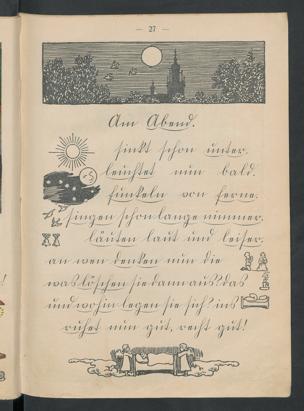 — 27 —
Am Abend.
sinkt schon unter.
leuchtet nun bald.
funkeln von ferne.
singen schon lange nimmer.
läuten laut und leiser.
an wen denken nun die
was löschen sie dann aus? das
und wohin legen sie sich? ins
ruhet nun gut, recht gut!